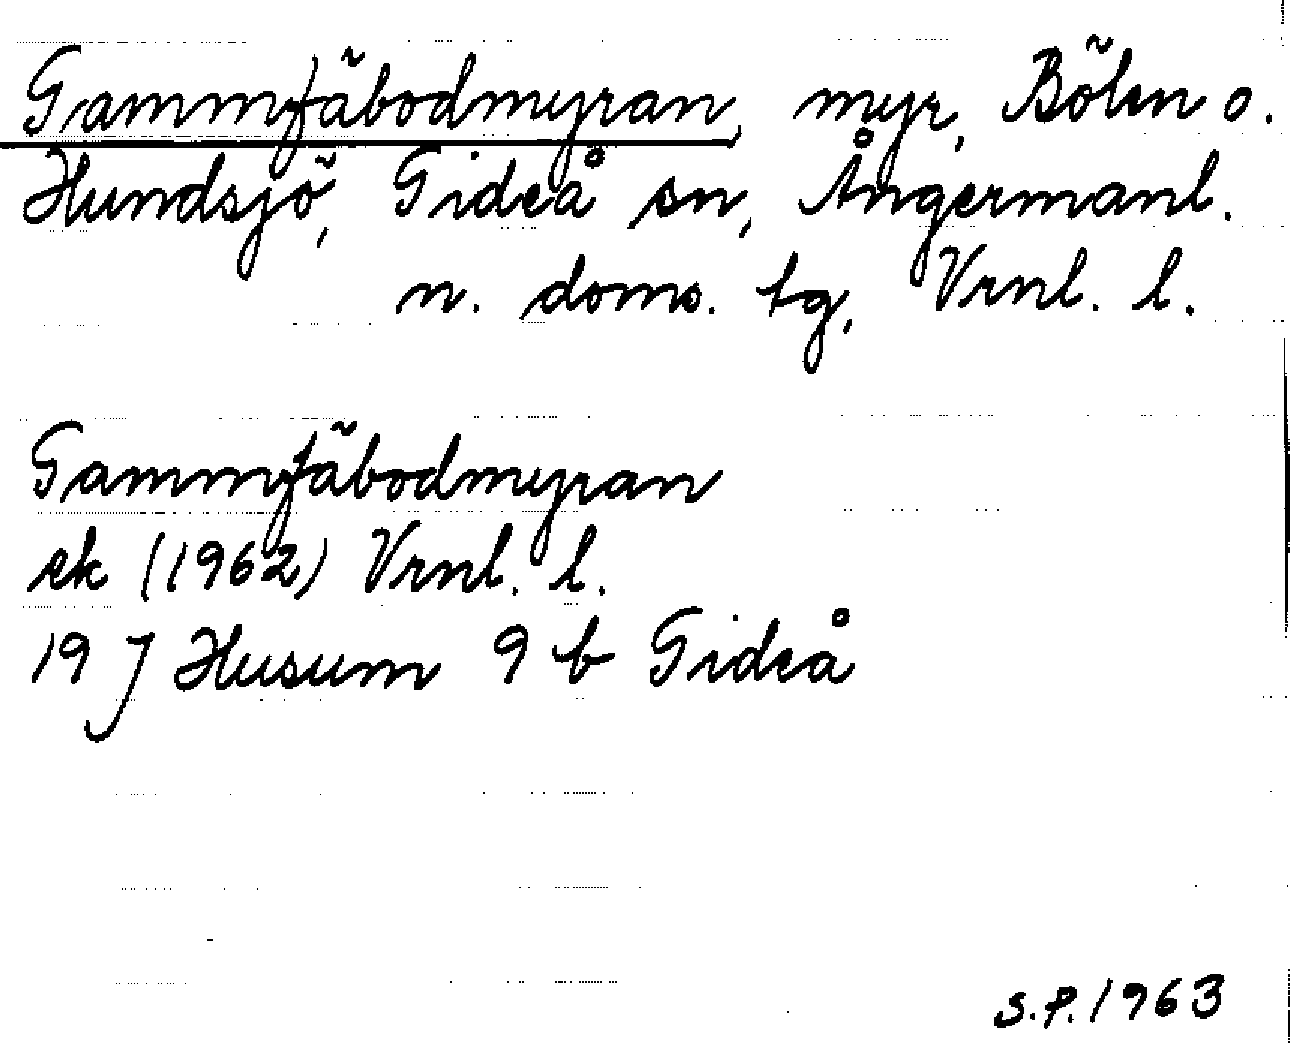 Gammfäbodmyran, myr, Bölen o.
Hundsjö, Gideå sn, Ångermanl.
n. doms. tg, Vrnl. l.
Gammfäbodmyran
ek (1962) Vrnl. l.
19 J Husum 9 b Gideå
S.P. 1963